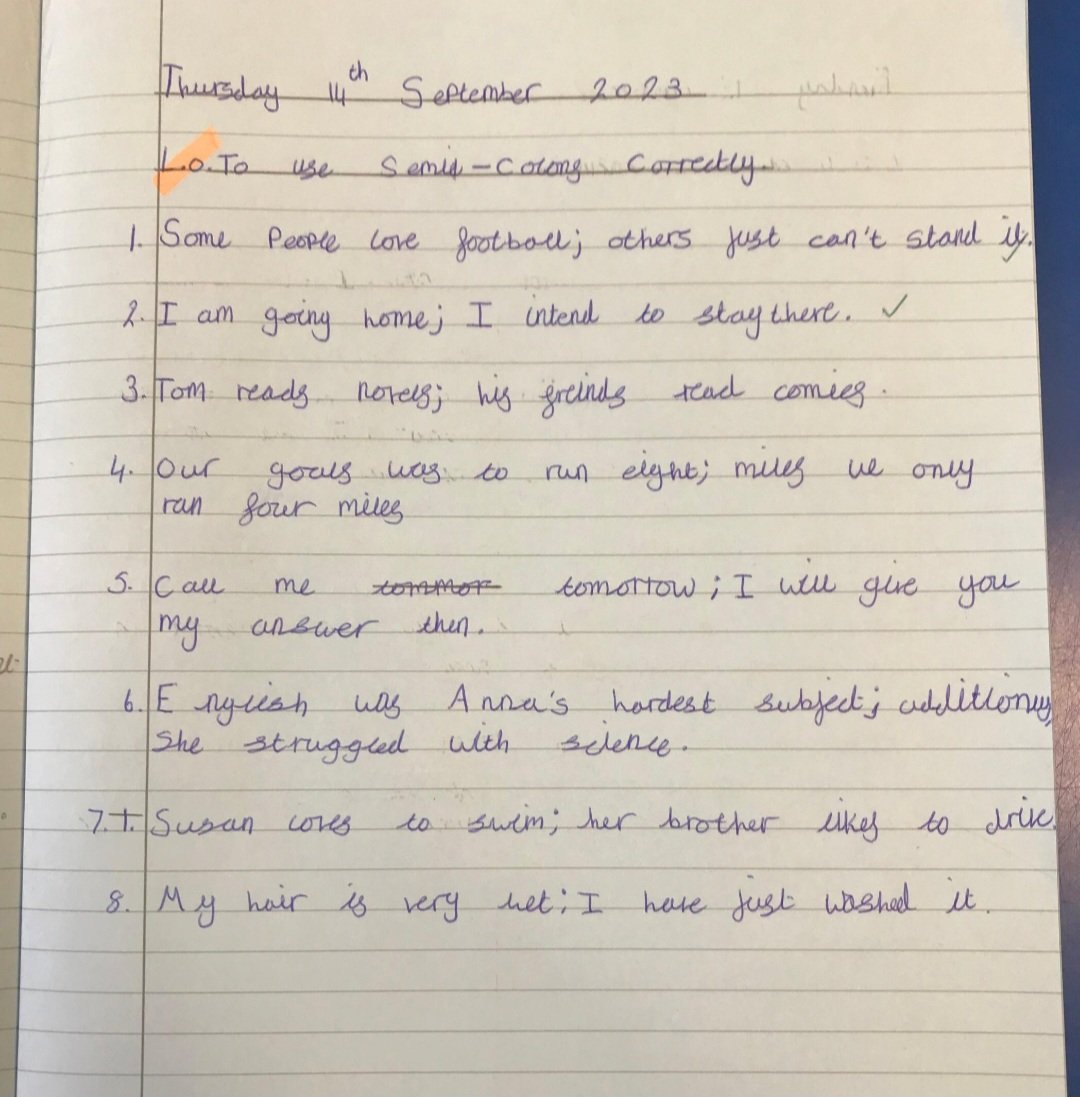 Thursday 14th September 2023
L.O. To use Semi-Colons Correctly.
1. Some People love football; others just can't stand it.
2. I am going home; I intend to stay there. ✓
3. Tom reads novels; his greinds read comics.
4. Our goals was to run eight; miles we only
ran four miles
5. Call me tommor tomorrow; I will give you
my answer then.
6. English was Anna's hardest subject; additionly
She struggled with science.
7. Susan loves to swim; her brother likes to drive.
8. My hair is very wet; I have just washed it.